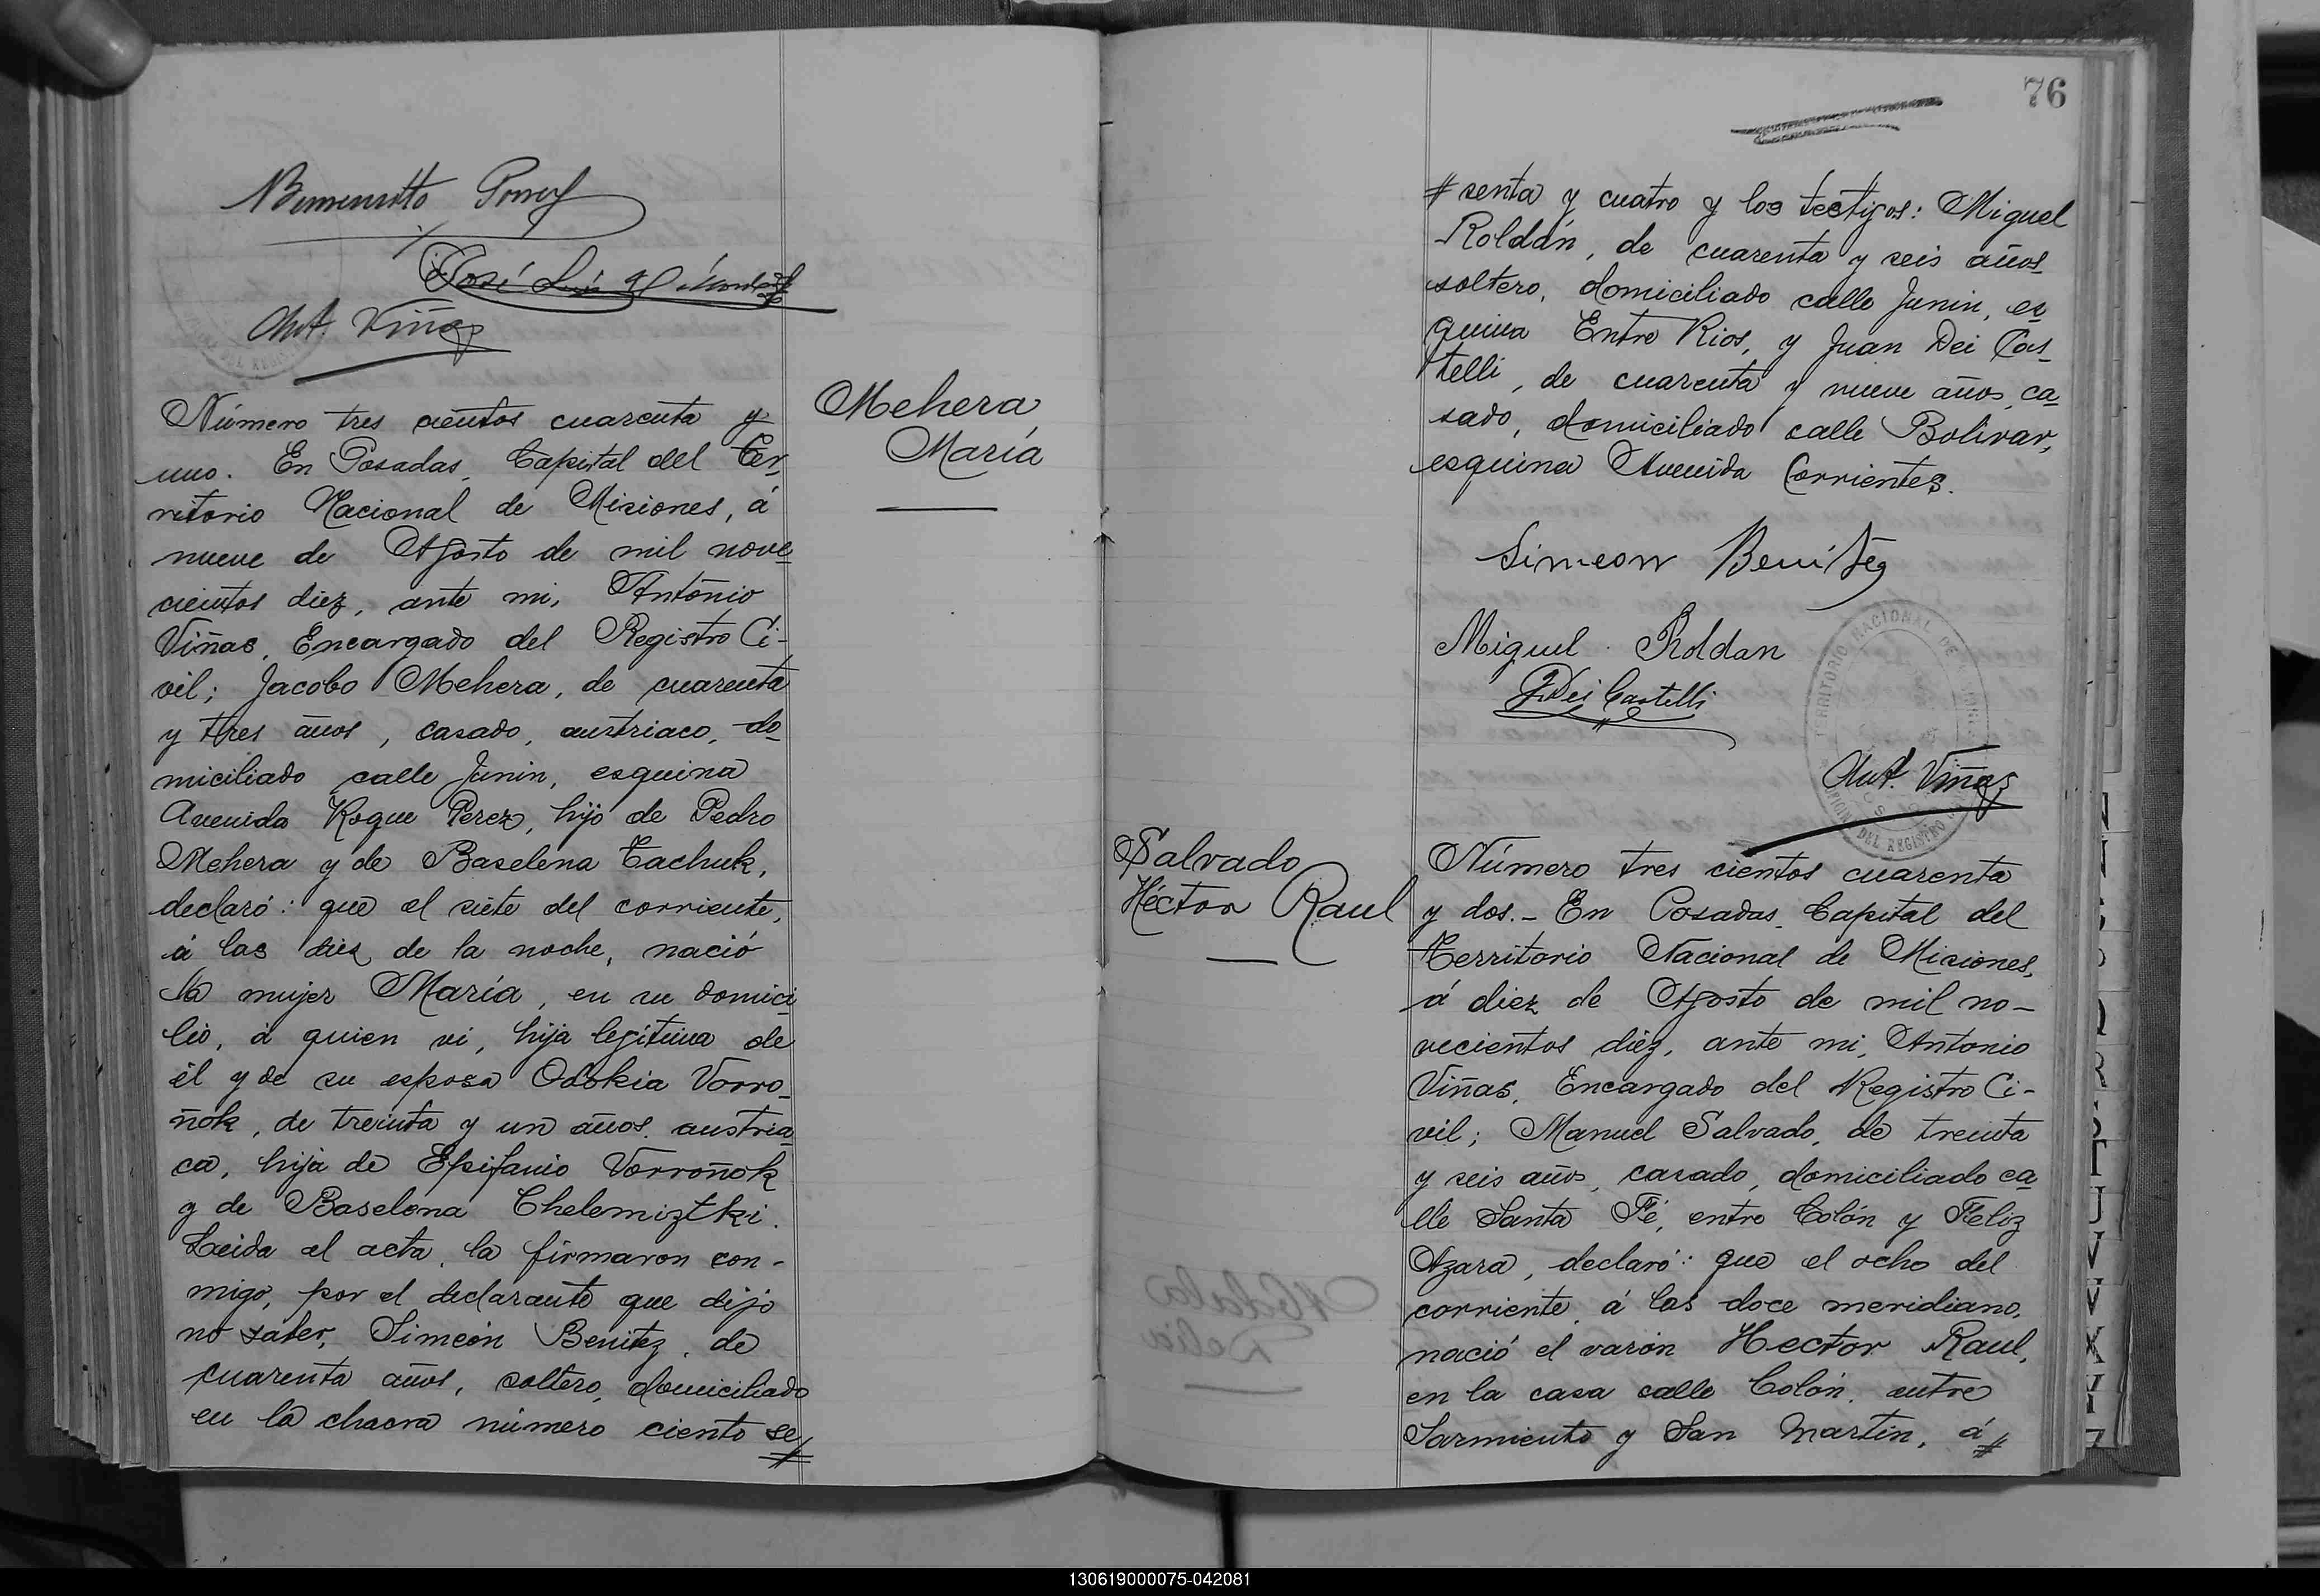 Ant. Viñas
Número tres cientos cuarenta y
uno. En Posadas, Capital del Te-
rritorio Nacional de Misiones, á
nueve de Agosto de mil nove
cientos diez, ante mi, Antonio
Viñas, Encargado del Registro Ci-
vil; Jacobo Mehera, de cuarenta
y tres años, casado, austriaco, do
miciliado calle Junin, esquina
Avenida Roque Perez, hijo de Pedro
Mehera y de Baselena Tachuk,
declaró: que el siete del corriente,
á las diez de la noche, nació
la mujer María, en su domici
lio, á quien vi, hija legítima de
él y de su esposa Odokia Vorro-
ñok, de treinta y un años, austria
ca, hija de Epifanio Vorroñok
y de Baselena Chelemiztki.
Leida el acta, la firmaron con-
migo, por el declarante que dijo
no saber, Simeón Benitez, de
cuarenta años, soltero, domiciliado
en la chacra número ciento se#
Mehera
María
76
# senta y cuatro y los testigos: Miguel
Roldán, de cuarenta y seis años
soltero, domiciliado calle Junin, es
quina Entre Rios, y Juan Dei Cas-
telli, de cuarenta y nueve años, ca
sado, domiciliado calle Bolivar,
esquina Avenida Corrientes.
Simeon Benítez
Miguel Roldan
J. Dei Castelli
Ant. Viñas
Salvado
Héctor Raul
Número tres cientos cuarenta
y dos.- En Posadas, Capital del
Territorio Nacional de Misiones,
á diez de Agosto de mil no-
vecientos diéz, ante mi, Antonio
Viñas, Encargado del Registro Ci-
vil; Manuel Salvado, de treinta
y seis años, casado, domiciliado ca
lle Santa Fé, entre Colón y Feliz
Azara, declaró: que el ocho del
corriente, á las doce meridiano,
nació el varón Hector Raul,
en la casa calle Colón, entre
Sarmiento y San Martin, á#
130619000075-042081